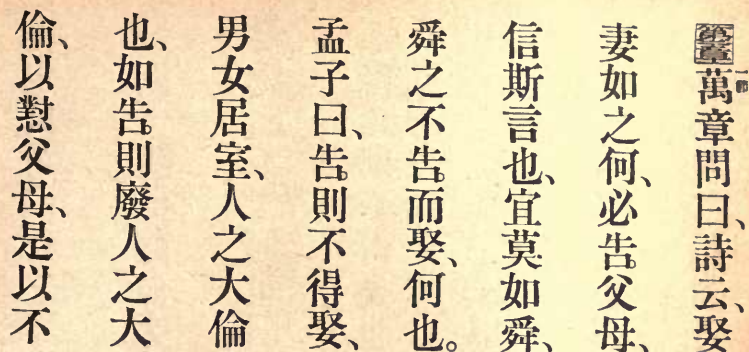 第二章萬章問曰、詩云、娶
妻如之何、必告父母、
信斯言也、宜莫如舜、
舜之不告而娶、何也。
孟子曰、告則不得娶、
男女居室、人之大倫
也、如告則廢人之大
倫、以懟父母、是以不